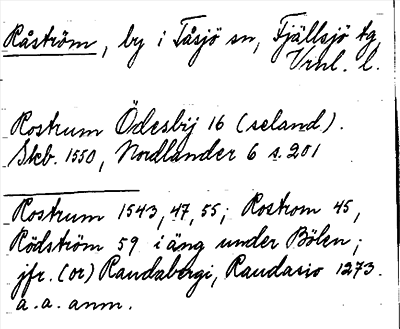 Råström, by i Tåsjö sn, Fjällsjö tg,
Vrnl. l.
Rostrum Ödesbij 16 (seland).
Skb. 1550, Nordlander 6 s. 201
Rostrum 1543, 47, 55; Rostrom 45,
Rödström 59 i äng under Bölen;
jfr. (or) Raudabergi, Raudasio 1273.
a. a. anm.